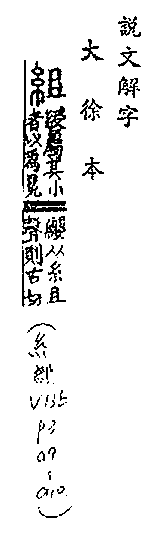 說文解字
大徐本
組
綬屬其小
者以爲冕
纓从糸且
聲則古切
(糸部
p3
a9
a10)